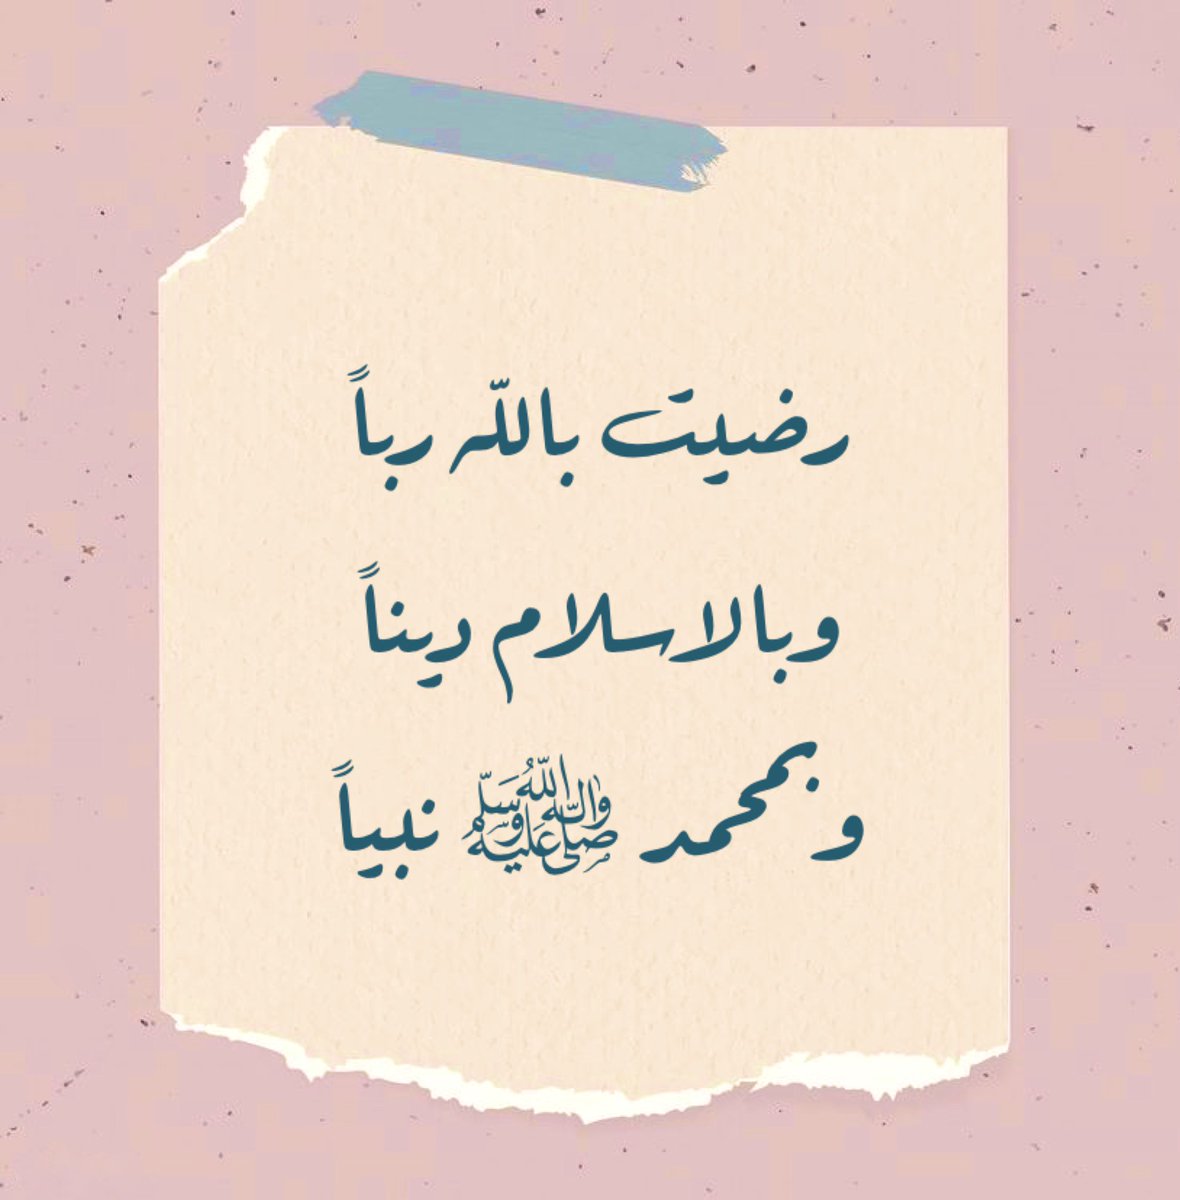 رضيت باللّه رباً
وبالاسلام ديناً
وبمحمد ﷺ نبياً